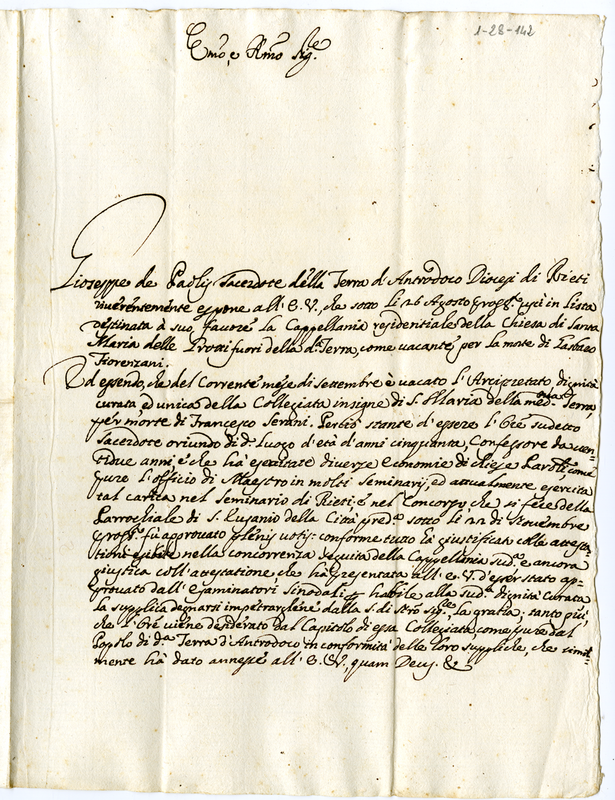 1-28-142
Em̃o, e Rm̃o Sig.re
Gioseppe de Paolis Sacerdote della Terra d'Antrodoco Diocesi di Rieti
riverentemente espone all'E.V., che sotto li 26 Agosto pross.º uscì in lista
destinata à suo favore la Cappellania residentiale della Chiesa di Santa
Maria delle Grotti fuori della d.ª Terra, come vacante per la morte di
Fiorenzani.
Ed essendo, che del Corrente mese di Settembre è vacato l'Arcipretato dignità
curata ed unica della Collegiata insigne di S. Maria della med.ma Terra,
per morte di Francesco Serani. Perciò stante d'essere l'Ore sudetto
Sacerdote oriundo di d.º luogo d'età d'anni cinquanta, Confessore da ven-
tidue anni è che hà esercitate diverse economie di chiese Paroli, come
pure l'officio di Maestro in molti Seminarij, ed attualmente esercita
tal carica nel Seminario di Rieti, e nel Concorso che si fece della
Parrochiale di S. Eusanio della Città pred.ª sotto li 22 di Novembre
pross.º fù approvato plenis votis: conforme tutto la giustifica colle attesta-
tioni esibite nella concorrenza seguita della Cappellania sud.ª e ancora
giustifica coll'attestatione, che hà presentata all'E.V. d'esser stato ap-
provato dall'Esaminatori Sinodali habile alla sud.ª dignità Curata
la supplica degnarsi impetrarglene dalla S. di Nrõ Sig.re la gratia; tanto più,
che l'Ore viene desiderato dal Capitolo di essa Collegiata, come pure dal
Popolo di d.ª Terra d'Antrodoco in conformità delle loro suppliche, che simil-
mente hà dato annesse all'E.V., quam Deus &